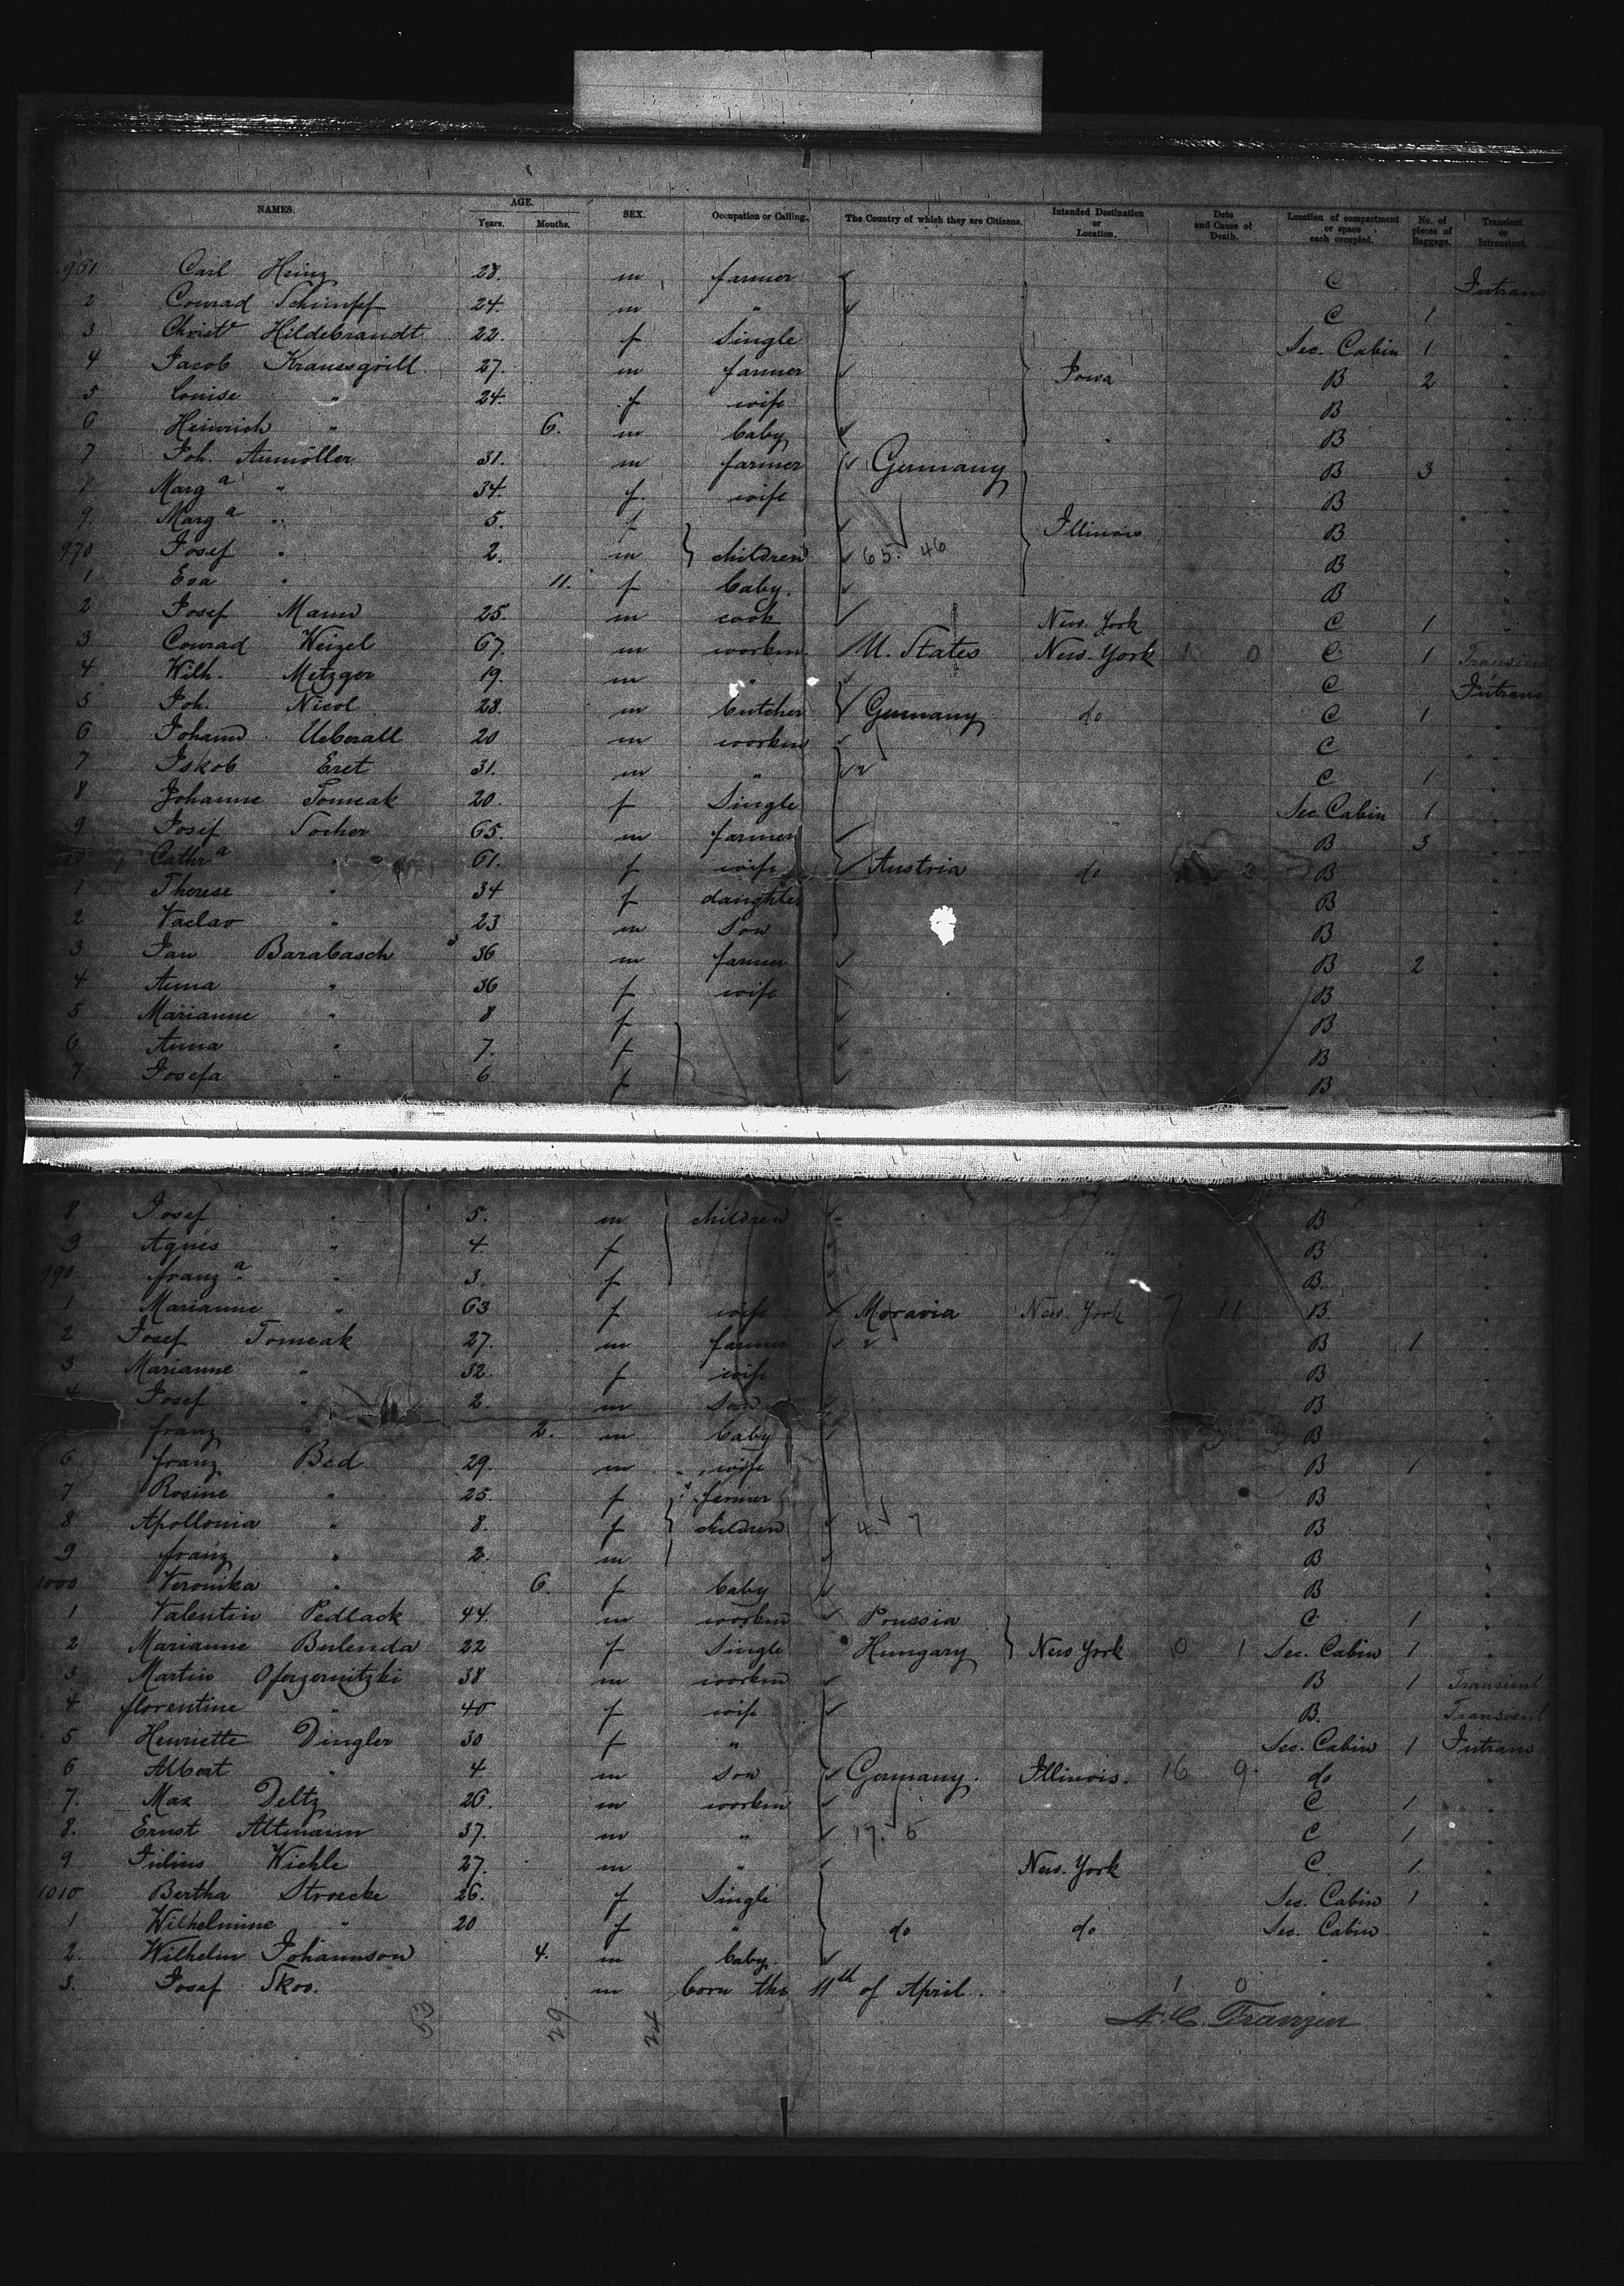 NAMES. AGE. SEX. Occupation or Calling. The Country of which they are Citizens. Intended Destination or Location. Date and Cause of Death. Location of compartment or space each occupied. No. of pieces of Baggage. Transient or Intransient.
Years. Months.
961 Carl Heinz 28. m farmer C Intrans
2 Conrad Schimpf 24. m " C 1 "
3 Christe Hildebrandt 22. f Single Sec. Cabin 1 "
4 Jacob Kraussgrill 27. m farmer Iowa B 2 "
5 Louise " 24. f wife B "
6 Heinrich " 6. m baby B "
7 Joh. Aumöller 31. m farmer Germany B 3 "
8 Marga " 34. f. wife B "
9. Marga " 5. f Illinois B "
970 Josef " 2. m children 65. 46 B "
1 Eva " 11. f baby. B "
2 Josef Mann 25. m cook New. York C 1 "
3 Conrad Weizel 67. m workm. U. States New. York 1 0 C 1 Transient
4 Wilh. Metzger 19. m " C Intrans
5 Joh. Nicol 28. m butcher Germany do C 1 "
6 Johann Ueberall 20 m workm C "
7 Jakob Eret 31. m " 2 C 1 "
8 Johanne Tomeak 20. f Single Sec. Cabin 1 "
9 Josef Socher 65. m farmer B 3 "
Cathra " 61. f wife Austria do 3 B "
1 Therese " 34 f daughter B "
2 Vaclav " 23 m Son B "
3 Jan Barabasch 36 m farmer B 2 "
4 Anna " 36 f wife B "
5 Marianne " 8 f B "
6 Anna " 7. f B "
7 Josefa " 6 f B
8 Josef " 5. m children B "
9 Agnes " 4. f B "
990 franza " 3. f B. "
1 Marianne " 63 f wife Moravia New. York 7 11 B. "
2 Josef Tomeak 27. m farmer 2 B 1 "
3 Marianne " 32. f wife B "
4 Josef " 2. m Son B "
franz " 2. m baby B "
6 franz Bed 29. m wife B 1 "
7 Rosine " 25. f farmer B "
8 Apollonia " 8. f children 4. 7 B "
9 franz " 2. m B "
1000 Veronika " 6. f baby B "
1 Valentin Pedlack 44. m workm Prussia C 1 "
2 Marianne Bulenda 22 f Single Hungary New York 0 1 Sec. Cabin 1 "
3 Martin 38 m workm B 1 Transient
4 florentine " 40 f wife B. Transient
5 Henriette Dingler 30 f " Sec. Cabin 1 Intrans
6 Albert " 4 m Son Germany. Illinois. 16 9. do "
7. Max Deltz 26. m workm C 1 "
8. Ernst Altmann 37. m " 17. 5 C 1 "
9 Julius Wiehle 27. m " New. York C. 1. "
1010 Bertha Stroecke 26. f Single Sec. Cabin 1 "
1 Wilhelmine " 20 f " do do Sec. Cabin "
2. Wilhelm Johannson 4. m baby. "
3. Josef Skos. m born the 11th of April. 1 0 "
53 29 24 N. C. Franzen